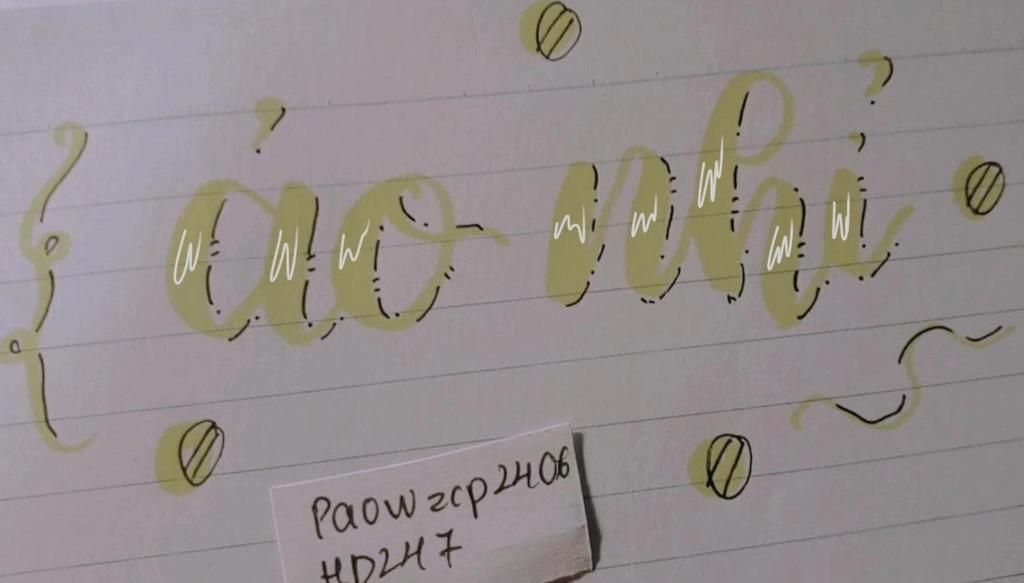 ảo nhỉ
Paowzcp2406
HD247